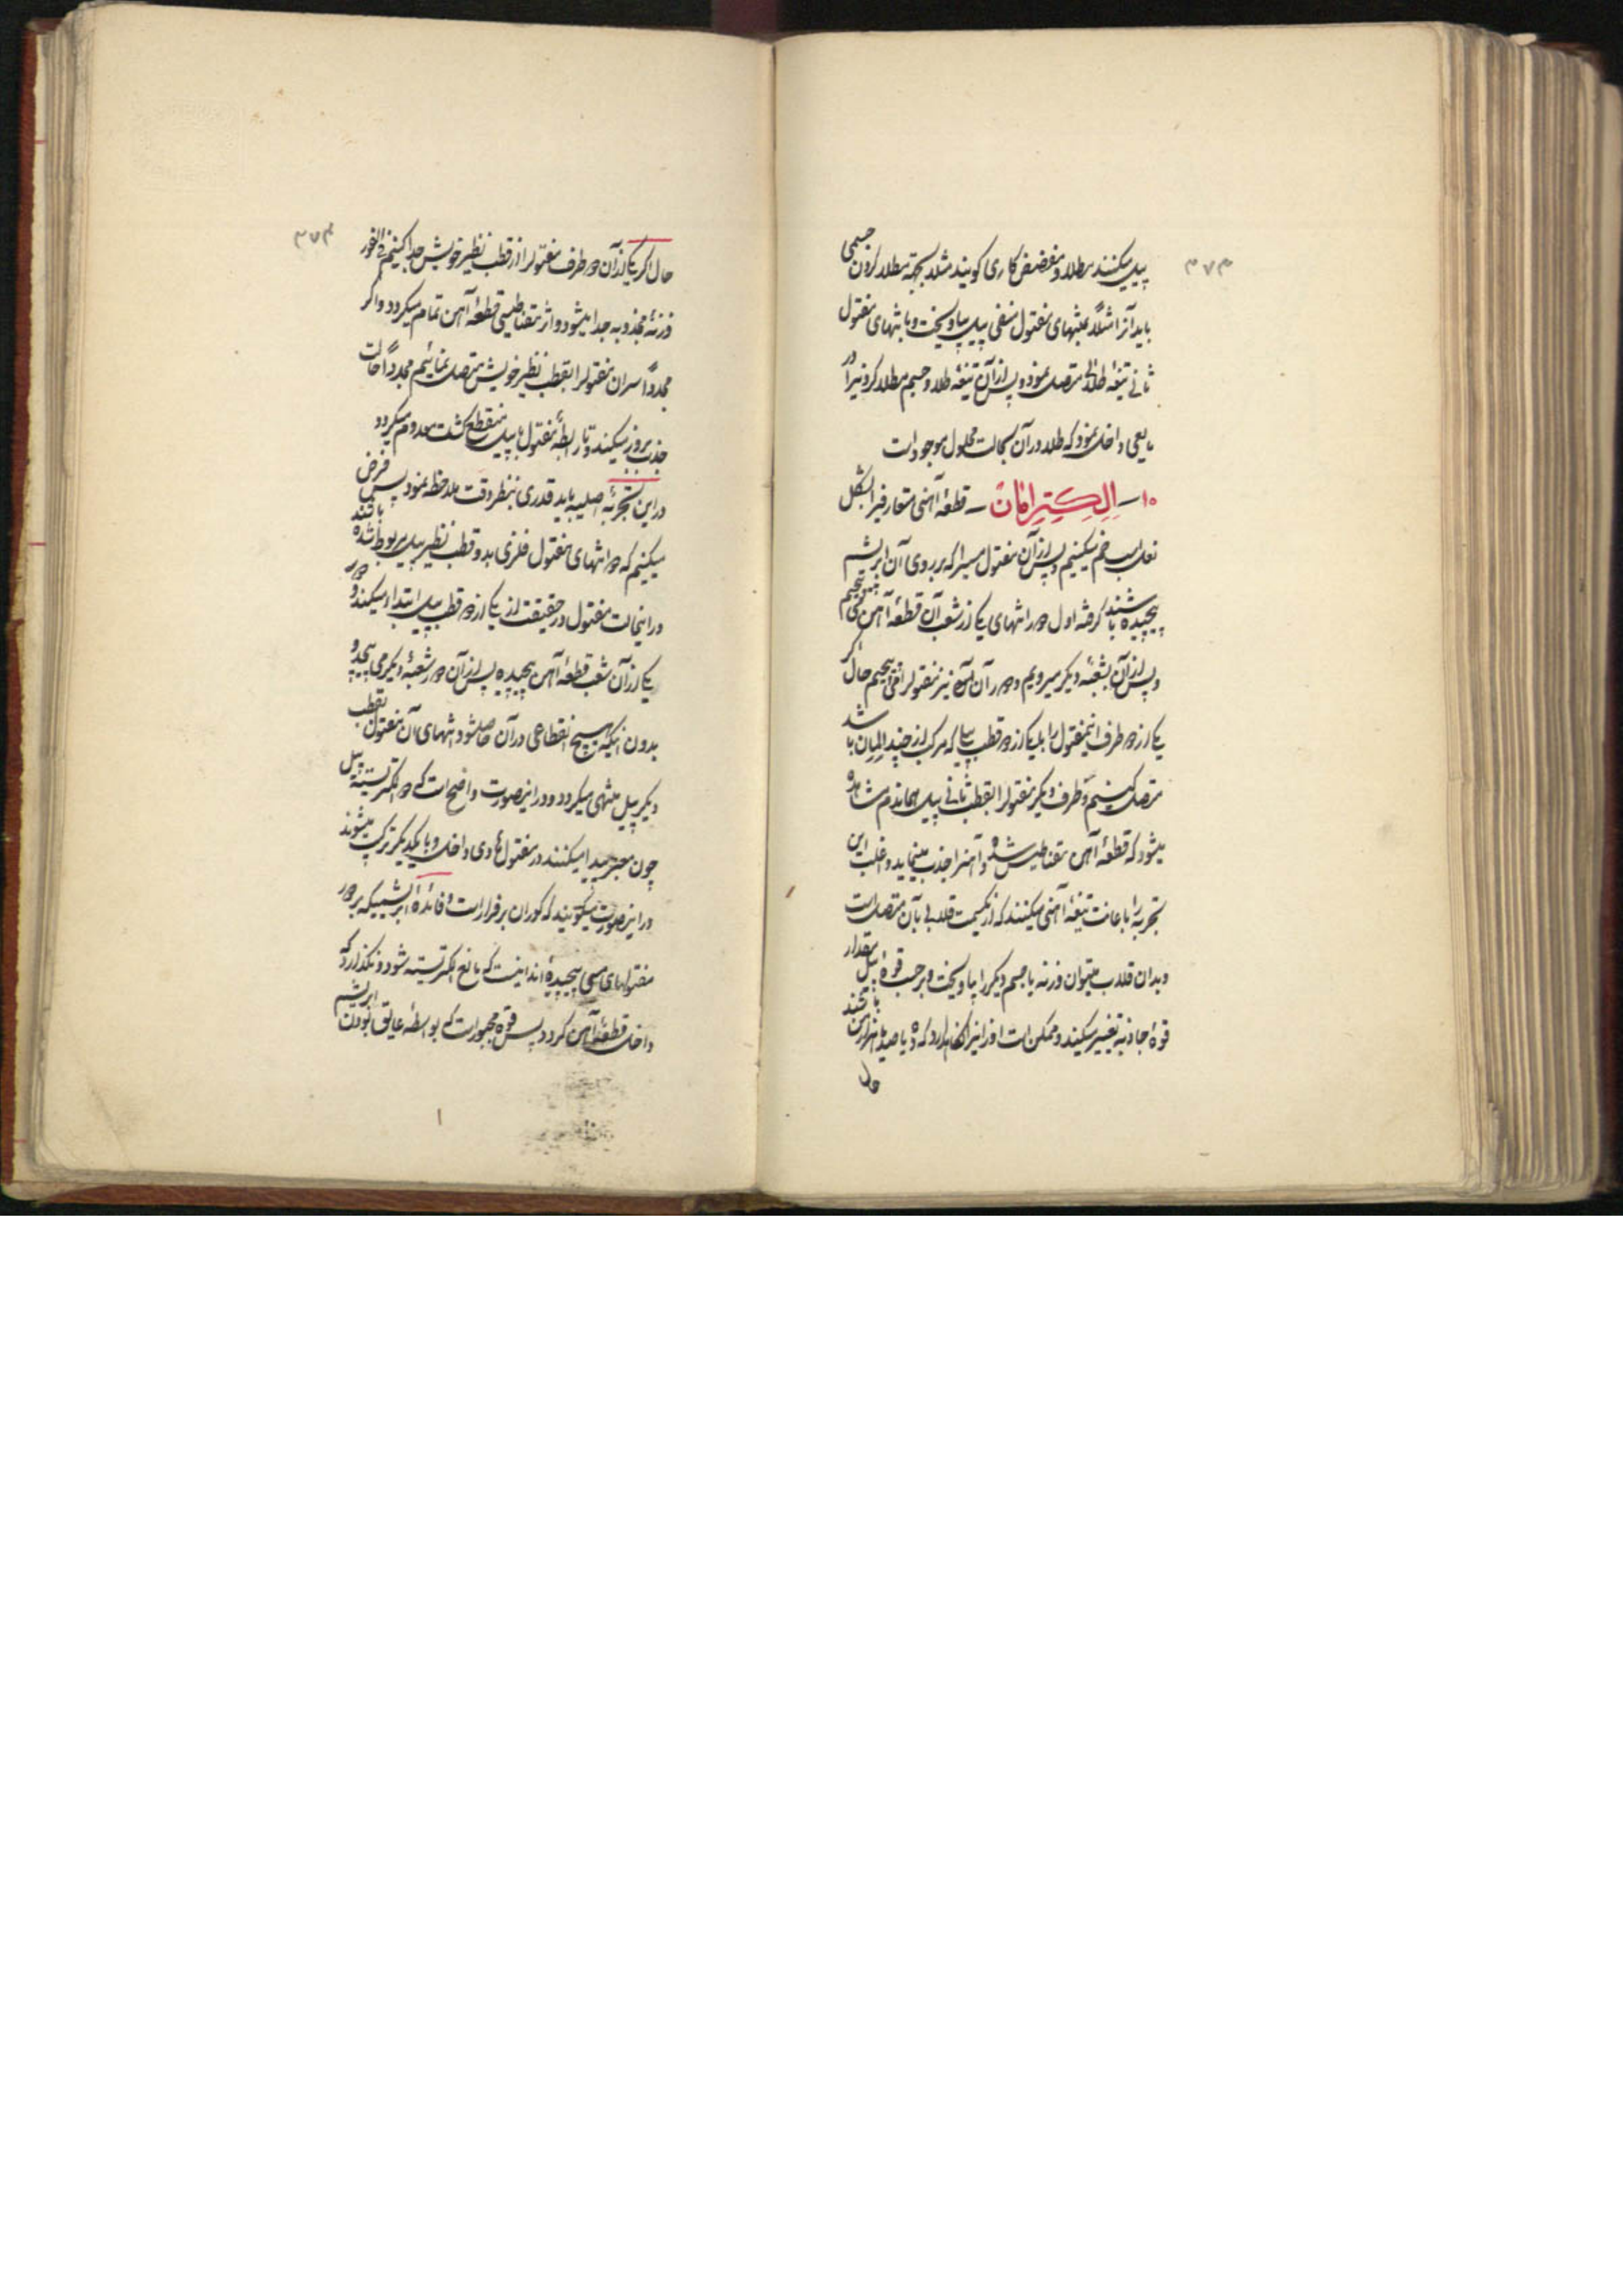 ۳۷۳
پیل میکنند مطلا و مفضض کاری گویند مثلا بجهة مطلا کردن جسمی
باید آنرا مثلاً بمنتهای مفتول منفی پیل بیاویخت و بانتهای مفتول
ثانی تیغهٔ طلائی متصل نمود و پس از آن تیغهٔ طلا و جسم مطلا کردنیرا در
مایعی داخل نمود که طلا در آن بحالت محلول موجود است
۱۰ـ الکتیرامان ـ قطعهٔ آهنی متعارفیرا بشکل
نعل اسب خم میکنیم و پس از آن مفتول مسیرا که بر روی آن ابریشم
پیچیده باشند گرفته اول در انتهای یکی از شعب آن قطعهٔ آهن می‌پیچیم
و پس از آن بشعبهٔ دیگر میرویم و در آن نیز مفتولرا می‌پیچیم حال اگر
یکی از دو طرف اینمفتول را بیکی از دو قطب پیلی که مرکب از چند المان باشد
متصل کنیم و طرف دیگر مفتولرا بقطب ثانی پیل هماندم مشاهده
میشود که قطعهٔ آهن مقناطیس شده و آهنرا جذب مینماید و اغلب این
تجربه را باعانت تیغهٔ آهنی میکنند که از یکسمت قلابی بآن متصل است
و بدان قلاب میتوان وزنه یا جسم دیگر را بیاویخت و بر حسب قوهٔ پیل مقدار
قوهٔ جاذبه تغییر میکند و ممکن است وزنیرا نگاهدارد که ده یا صد یا هزار من باشد
حال
۳۷۴
حال اگر یکی از آن دو طرف مفتولرا از قطب نظیر خویش جدا کنیم فی الفور
وزنهٔ مجذوبه جدا میشود و اثر مقناطیسی قطعهٔ آهن تمام میگردد و اگر
مجدداً سر آن مفتولرا بقطب نظیر خویش متصل نمائیم مجدداً حالت
جذب بروز میکند و تا رابطهٔ مفتول با پیل منقطع گشت معدوم میگردد
در این تجربهٔ اصلیه باید قدری بنظر دقت ملاحظه نمود پس فرض
میکنیم که دو انتهای مفتول فلزی بدو قطب نظیر پیل مربوط شده باشند
در اینحالت مفتول در حقیقت از یکی از دو قطب پیل ابتدا میکند و در
یکی از آن شعب قطعهٔ آهن پیچیده پس از آن در شعبهٔ دیگر می پیچد و
بدون اینکه هیچ انقطاعی در آن حاصل شود منتهای آن مفتول بقطب
دیگر پیل منتهی میگردد و در اینصورت واضح است که دو الکتریسیتهٔ پیل
چون معبر پیدا میکنند در مفتول هادی داخل و با یکدیگر ترکیب میشوند
در اینصورت میگویند که کوران برقرار است و فائدهٔ ابریشمیکه بر دور
مفتولهای مسی پیچیده‌اند اینست که مانع الکتریسیته شود و نگذارد که
داخل قطعهٔ آهن گردد پس قوه مجبور است که بواسطهٔ عایق بودن ابریشم